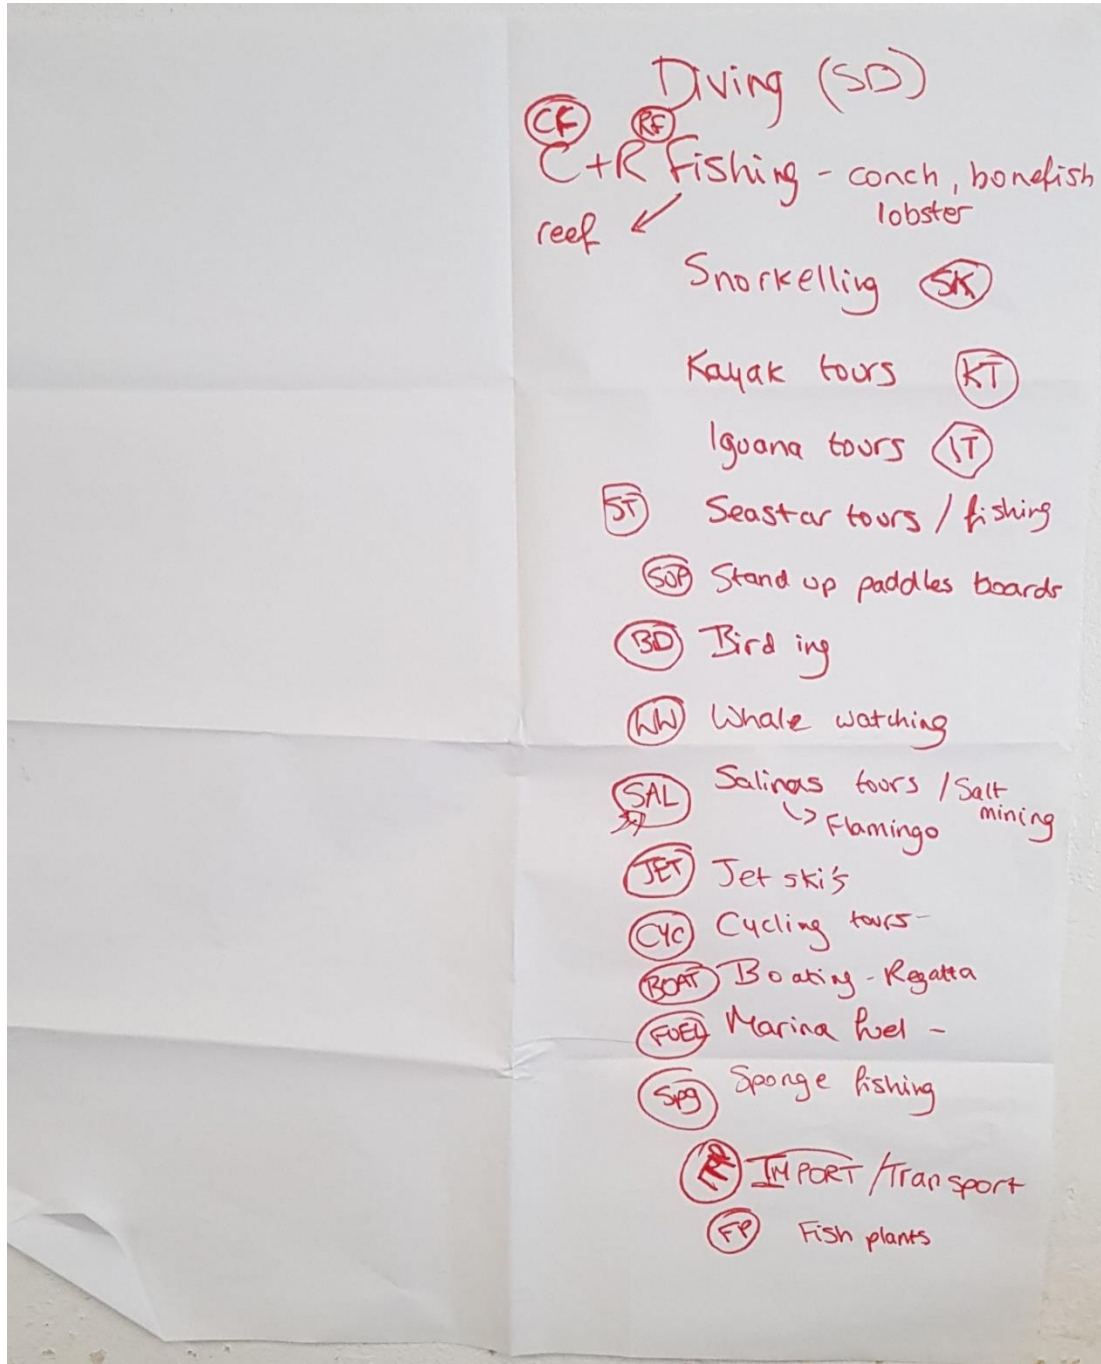 Diving (SD)
CF RF
C+R Fishing - conch, bonefish
lobster
reef ↙
Snorkelling SK
Kayak tours KT
Iguana tours IT
ST Seastar tours / fishing
SUP Stand up paddles boards
BD Birding
WW Whale watching
SAL Salinas tours / Salt
mining
↳ Flamingo
JET Jet ski's
CYC Cycling tours -
BOAT Boating - Regatta
FUEL Marina fuel -
Spg Sponge fishing
IMPORT / Transport
FP Fish plants